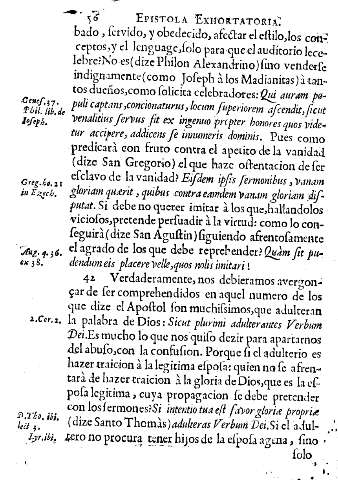 56 EPISTOLA EXHORTATORIA.
bado, servido, y obedecido, afectar el estilo, los con-
ceptos, y el lenguage, solo para que el auditorio le ce-
lebre? No es (dize Philon Alexandrino) sino venderse
indignamente (como Joseph à los Madianitas) à tan-
tos dueños, como solicita celebradores: Qui auram po-
Genes. 37.
Phil. lib. de
Joseph.
puli captans, concionaturus, locum superiorem ascendit, sicut
venalitius servus sit ex ingenuo propter honores quos vide-
tur accipere, addicens se innumeris dominis. Pues como
predicarà con fruto contra el apetito de la vanidad
(dize San Gregorio) el que haze ostentacion de ser
esclavo de la vanidad? Eisdem ipsis sermonibus, vanam
Greg. ho. 21
in Ezech.
gloriam quærit, quibus contra eamdem vanam gloriam dis-
putat. Si debe no querer imitar à los que, hallandolos
viciosos, pretende persuadir à la virtud: como lo con-
seguirà (dize San Agustin) siguiendo afrentosamente
el agrado de los que debe reprehender? Quàm sit pu-
Aug. q. 36.
ex 38.
dendum eis placere velle, quos nolis imitari!
42 Verdaderamente, nos debieramos avergon-
çar de ser comprehendidos en aquel numero de los
que dize el Apostol son muchissimos, que adulteran
2. Cor. 2.
la palabra de Dios: Sicut plurimi adulterantes Verbum
Dei. Es mucho lo que nos quiso dezir para apartarnos
del abuso, con la confusion. Porque si el adulterio es
hazer traicion à la legitima esposa: quien no se afren-
tarà de hazer traicion à la gloria de Dios, que es la es-
posa legitima, cuya propagacion se debe pretender
con los sermones? Si intentio tua est favor gloriæ propriæ
D. Tho. ibi.
lect 3.
Lyr. ibi.
(dize Santo Thomàs) adulteras Verbum Dei. Si el adul-
tero no procura tener hijos de la esposa agena, sino
solo